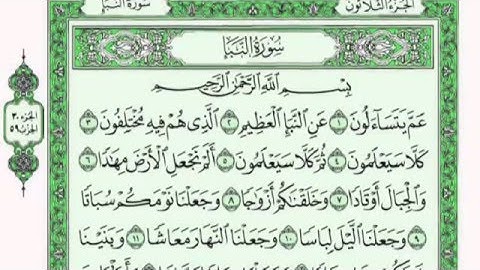 الجزء الثلاثون
سورة النبإ
سُورَةُ النَّبَإِ
بِسْمِ اللَّهِ الرَّحْمَٰنِ الرَّحِيمِ
عَمَّ يَتَسَاءَلُونَ ١ عَنِ النَّبَإِ الْعَظِيمِ ٢ الَّذِي هُمْ فِيهِ مُخْتَلِفُونَ ٣
كَلَّا سَيَعْلَمُونَ ٤ ثُمَّ كَلَّا سَيَعْلَمُونَ ٥ أَلَمْ نَجْعَلِ الْأَرْضَ مِهَٰدًا ٦
وَالْجِبَالَ أَوْتَادًا ٧ وَخَلَقْنَٰكُمْ أَزْوَٰجًا ٨ وَجَعَلْنَا نَوْمَكُمْ سُبَاتًا
٩ وَجَعَلْنَا الَّيْلَ لِبَاسًا ١٠ وَجَعَلْنَا النَّهَارَ مَعَاشًا ١١ وَبَنَيْنَا
الجزء ٣٠
الحزب ٥٩